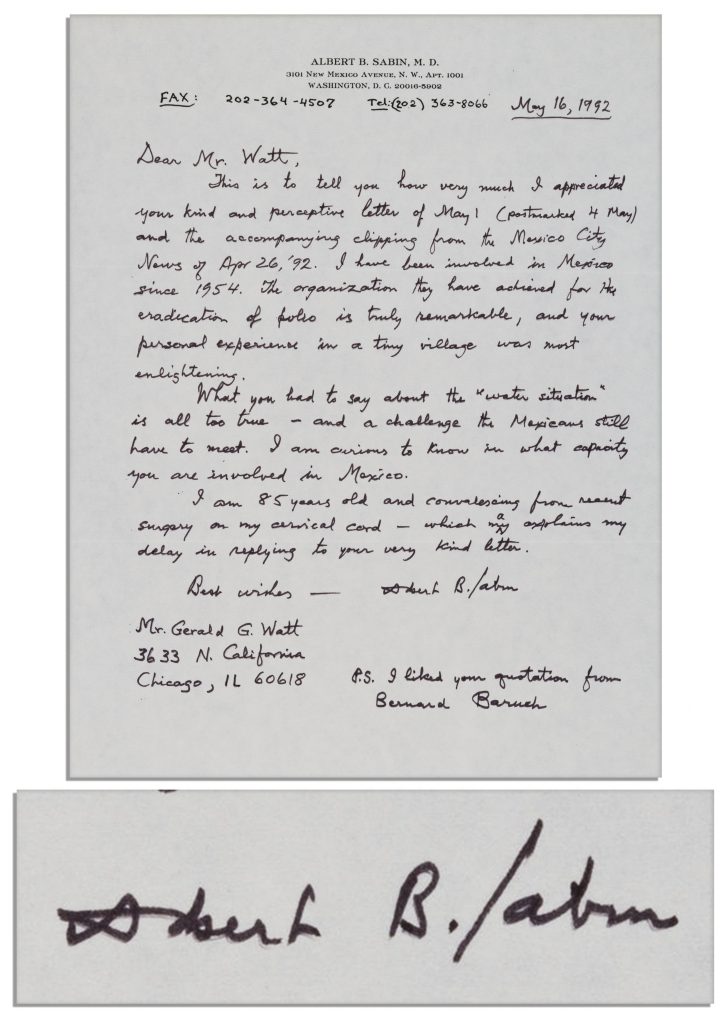 ALBERT B. SABIN, M. D.
3101 NEW MEXICO AVENUE, N. W., APT. 1001
WASHINGTON, D. C. 20016-5902
FAX: 202-364-4507 Tel:(202) 363-8066 May 16, 1992
Dear Mr. Watt,
This is to tell you how very much I appreciated
your kind and perceptive letter of May 1 (postmarked 4 May)
and the accompanying clipping from the Mexico City
News of Apr 26, '92. I have been involved in Mexico
since 1954. The organization they have achieved for the
eradication of polio is truly remarkable, and your
personal experience in a tiny village was most
enlightening.
What you had to say about the "water situation"
is all too true – and a challenge the Mexicans still
have to meet. I am curious to know in what capacity
you are involved in Mexico.
I am 85 years old and convalescing from recent
surgery on my cervical cord – which may explains my
delay in replying to your very kind letter.
Best wishes — Albert B. Sabin
Mr. Gerald G. Watt
3633 N. California
Chicago, IL 60618
P.S. I liked your quotation from
Bernard Baruch
Albert B. Sabin